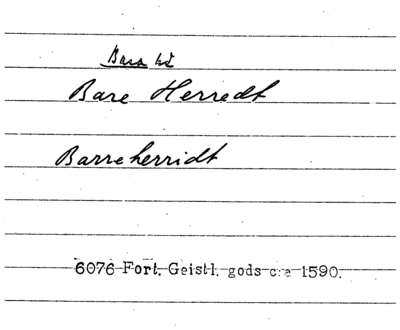 Bara hd
Bare Herredt
Barreherridt
6076 Fort. Geistl. gods c:a 1590.